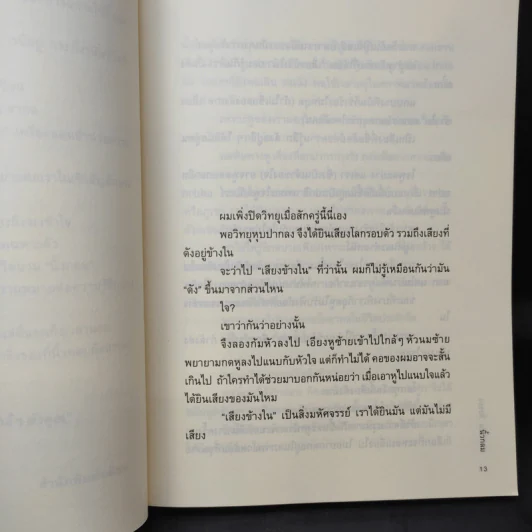 ผมเพิ่งปิดวิทยุเมื่อสักครู่นี้นี่เอง
พอวิทยุหุบปากลง จึงได้ยินเสียงโลกรอบตัว รวมถึงเสียงที่
ดังอยู่ข้างใน
จะว่าไป “เสียงข้างใน” ที่ว่านั้น ผมก็ไม่รู้เหมือนกันว่ามัน
“ดัง” ขึ้นมาจากส่วนไหน
ใจ?
เขาว่ากันว่าอย่างนั้น
จึงลองก้มหัวลงไป เอียงหูซ้ายเข้าไปใกล้ๆ หัวนมซ้าย
พยายามกดหูลงไปแนบกับหัวใจ แต่ก็ทำไม่ได้ คอของผมอาจจะสั้น
เกินไป ถ้าใครทำได้ช่วยมาบอกกันหน่อยว่า เมื่อเอาหูไปแนบใจแล้ว
ได้ยินเสียงของมันไหม
“เสียงข้างใน” เป็นสิ่งมหัศจรรย์ เราได้ยินมัน แต่มันไม่มี
เสียง
นิ้วกลม
13